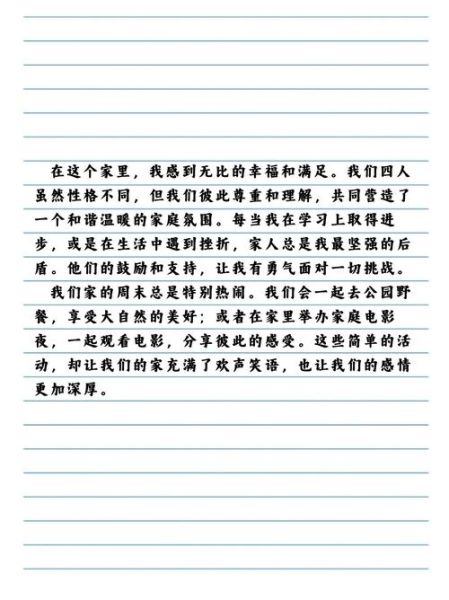 在这个家里，我感到无比的幸福和满足。我们四人
虽然性格不同，但我们彼此尊重和理解，共同营造了
一个和谐温暖的家庭氛围。每当我在学习上取得进
步，或是在生活中遇到挫折，家人总是我最坚强的后
盾。他们的鼓励和支持，让我有勇气面对一切挑战。
我们家的周末总是特别热闹。我们会一起去公园野
餐，享受大自然的美好；或者在家里举办家庭电影
夜，一起观看电影，分享彼此的感受。这些简单的活
动，却让我们的家充满了欢声笑语，也让我们的感情
更加深厚。